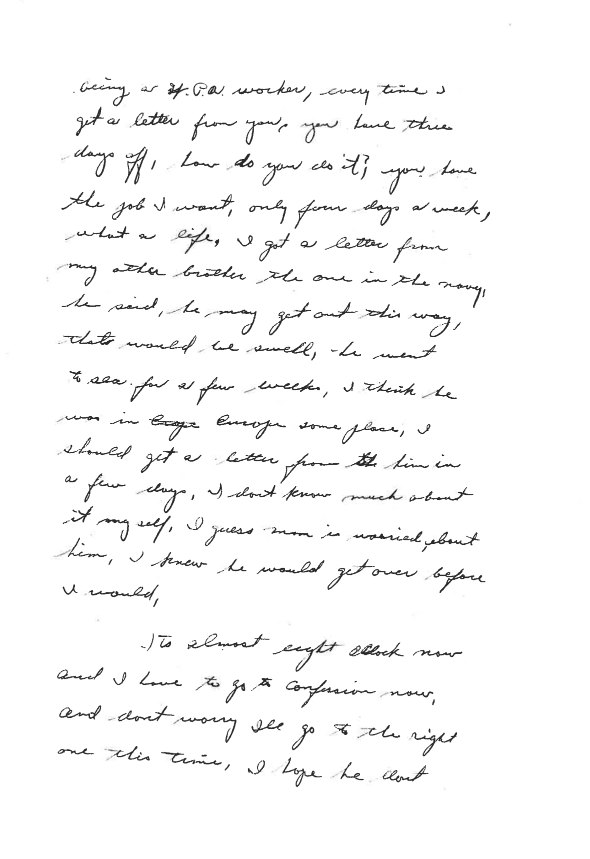 being a W.P.A. worker, every time I
get a letter from you, you have three
days off, how do you do it? you have
the job I want, only four days a week,
what a life, I got a letter from
my other brother the one in the navy,
he said, he may get out this way,
thats would be swell, he went
to sea for a few weeks, I think he
was in Europe some place, I
should get a letter from him in
a few days, I dont know much about
it my self, I guess mom is worried about
him, I knew he would get over before
I would,
Its almost eight oclock now
and I have to go to confession now,
and dont worry Ill go to the right
one this time, I hope he dont